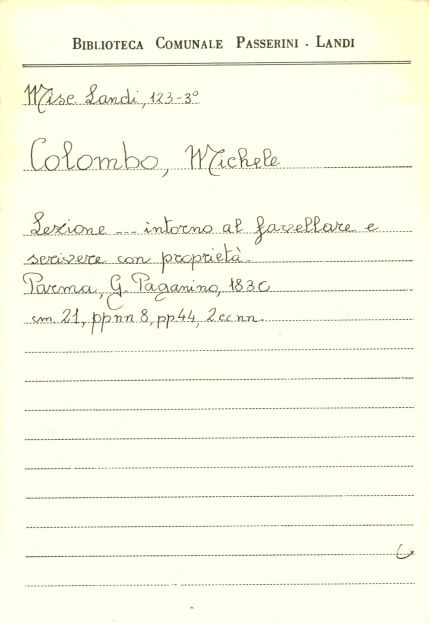 BIBLIOTECA COMUNALE PASSERINI - LANDI
Misc Landi, 123-3°
Colombo, Michele
Lezione ... intorno al favellare e
scrivere con proprietà.
Parma, G. Paganino, 1830
cm. 21, ppnn 8, pp 44, 2 cc nn.